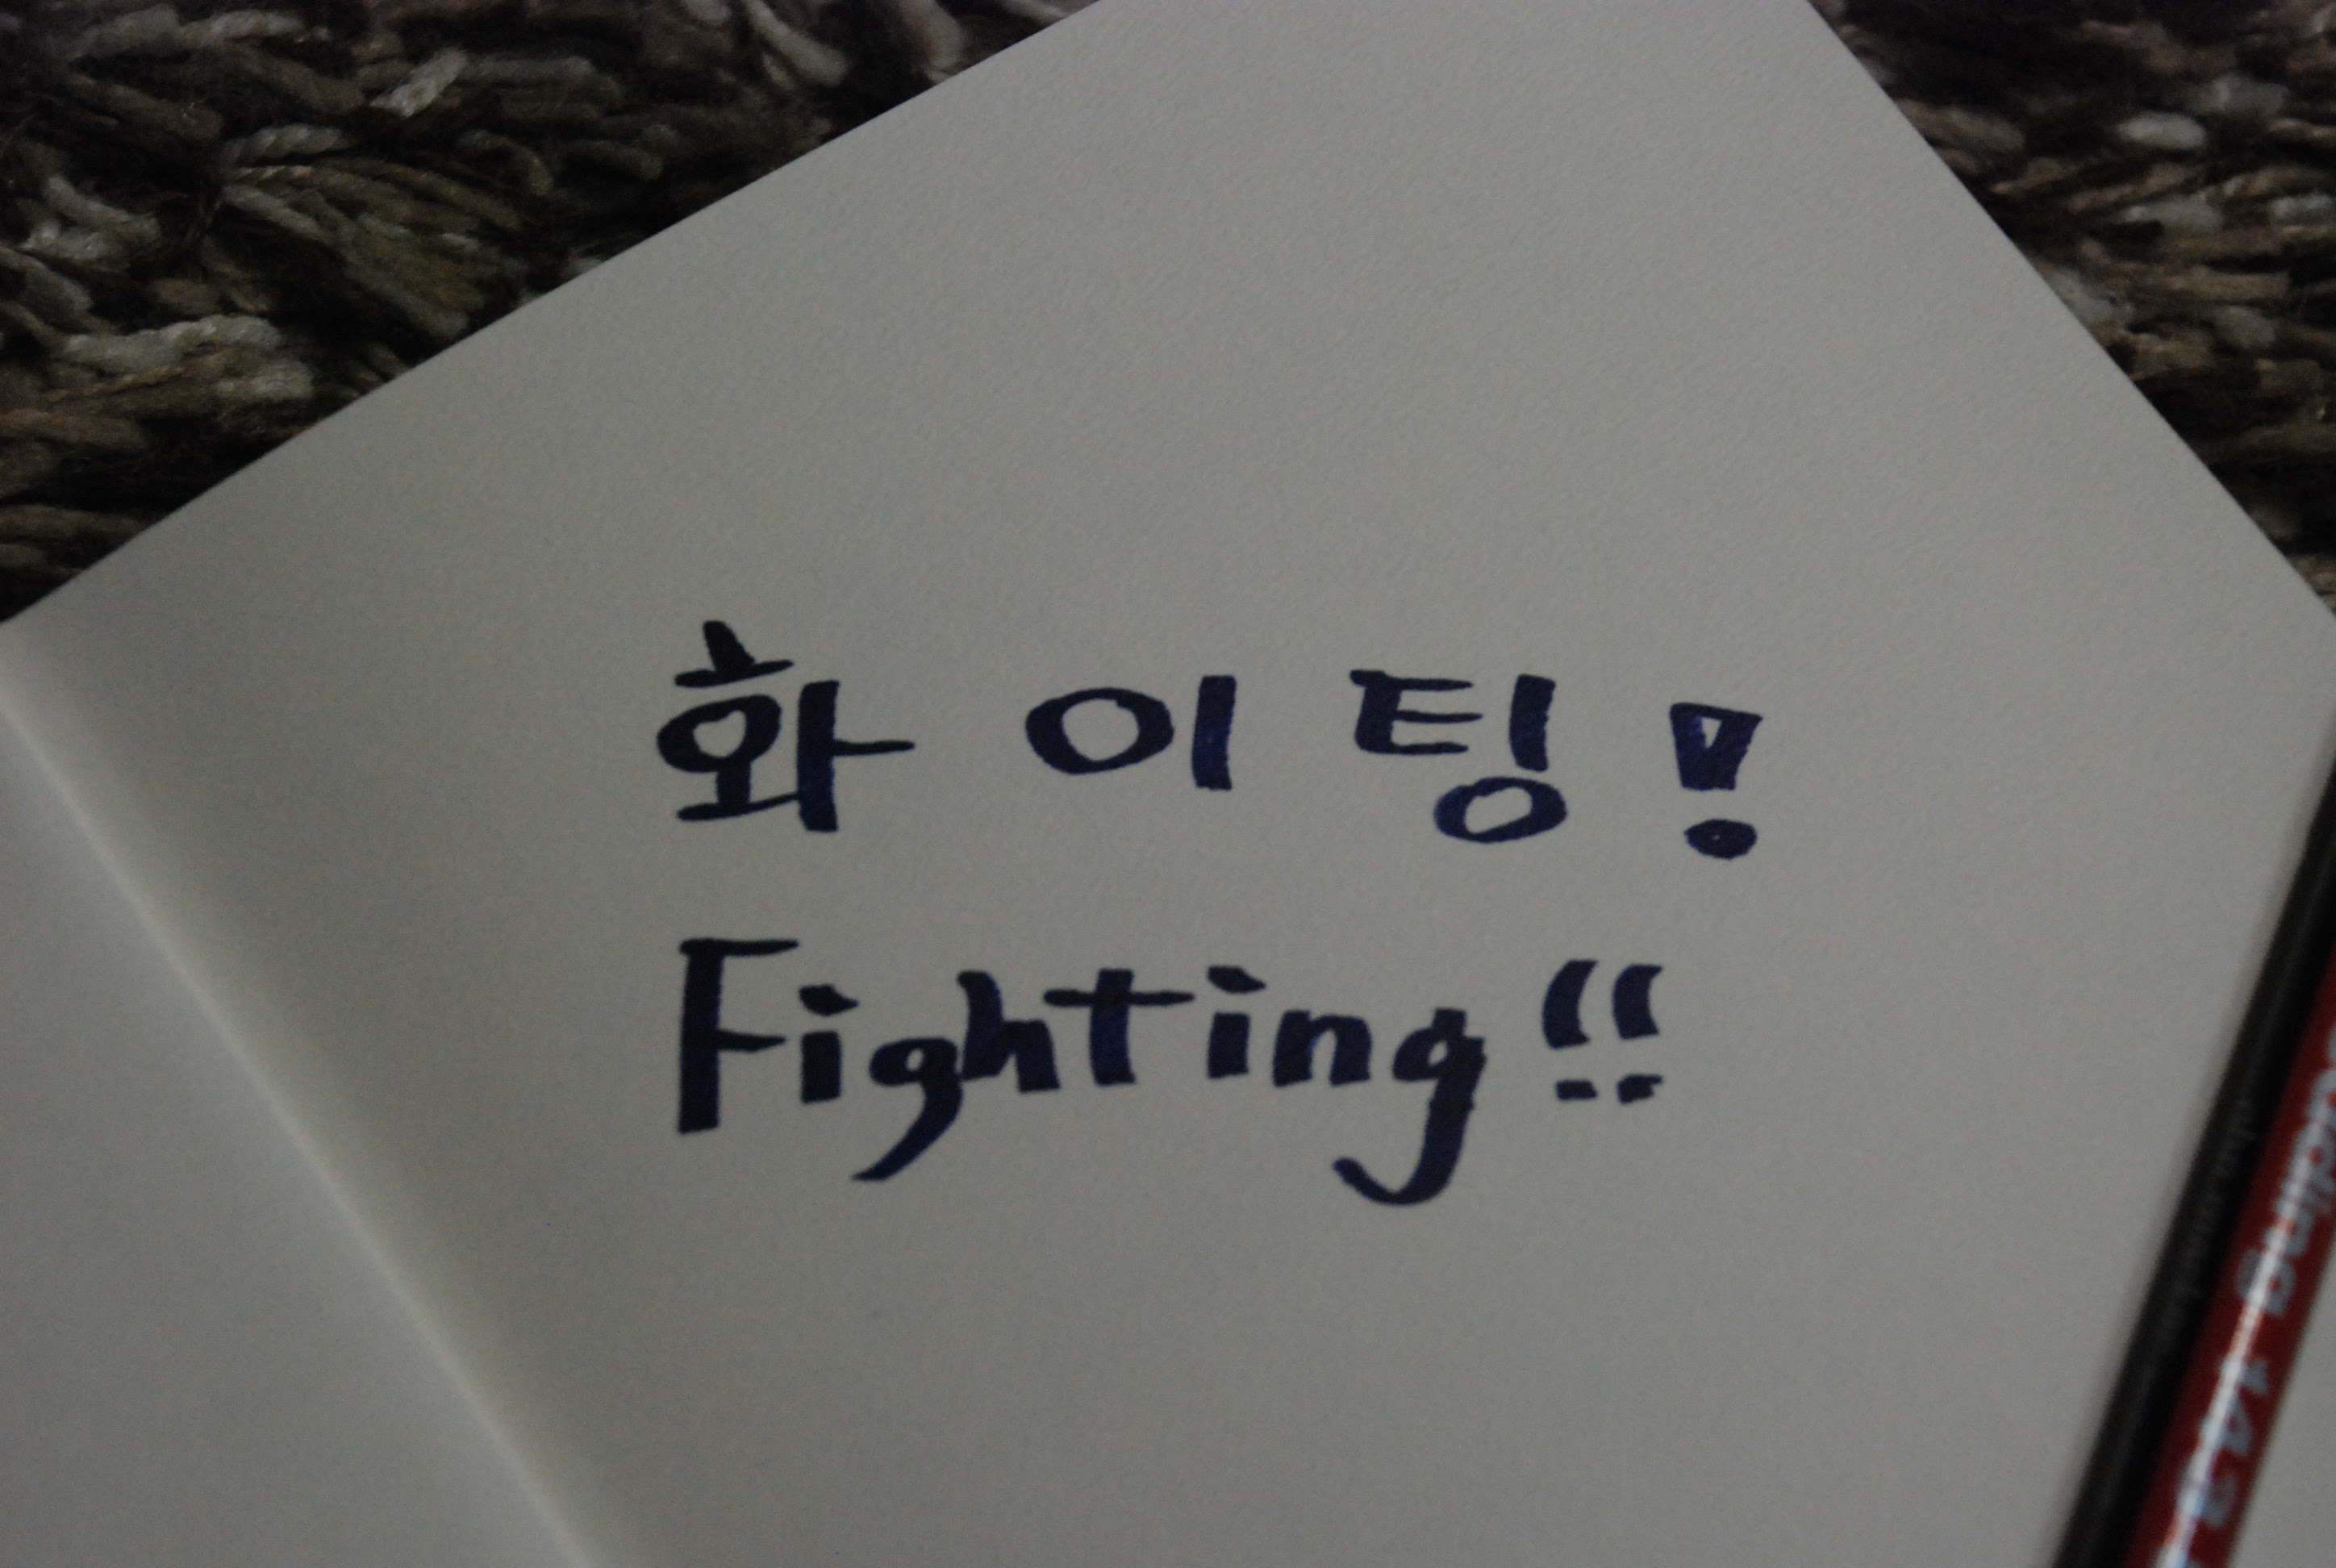 화이팅!
Fighting!!